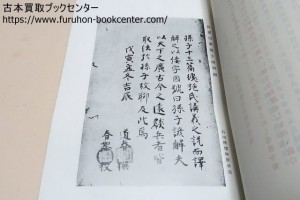 古本買取ブックセンター
https://www.furuhon-bookcenter.com/
孫子十三篇據施氏講義之説而譯
解之以倭字因號曰孫子諺解夫
以天下之廣古今之遠兵者皆
取法於孫子故聊及此焉
戊寅孟冬吉辰
道春
春